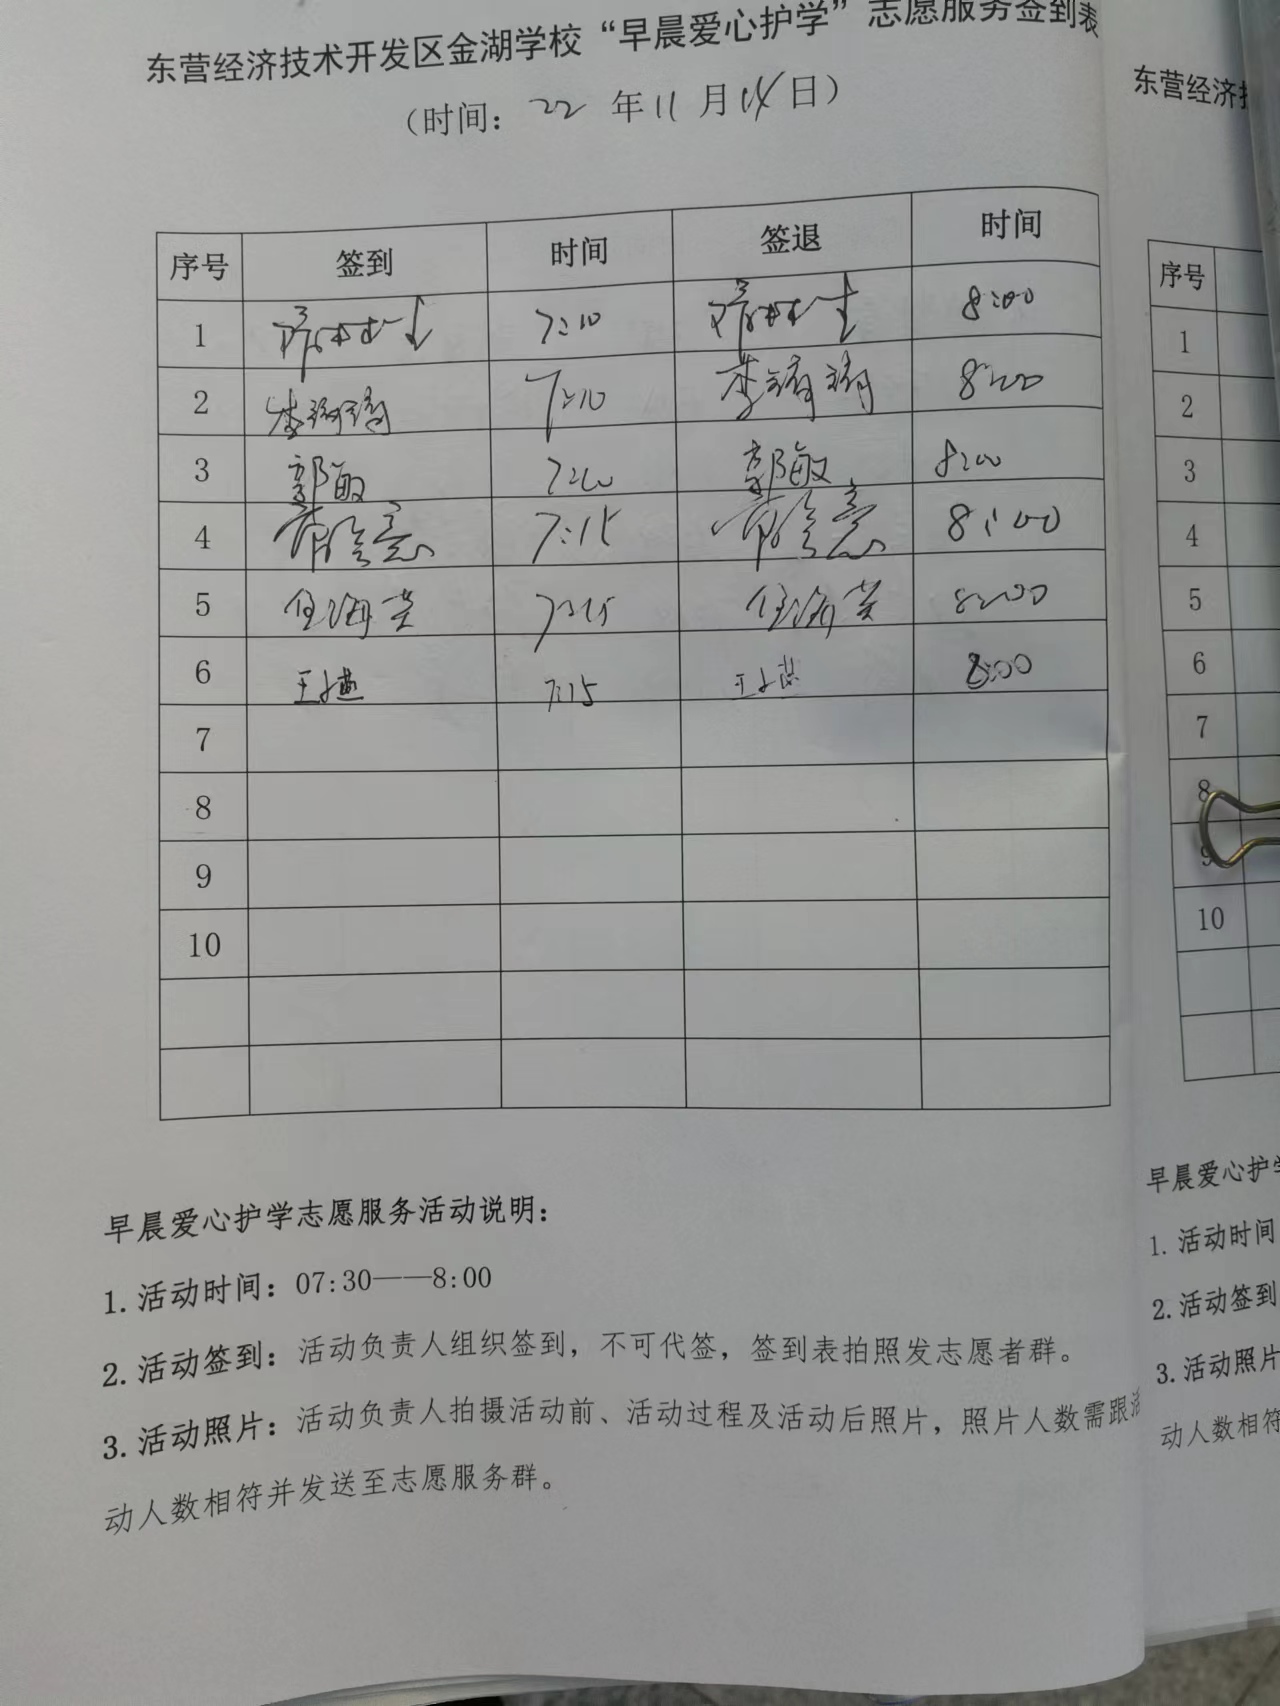 东营经济技术开发区金湖学校“早晨爱心护学”志愿服务签到表
（时间：22 年 11 月 14 日）
序号 签到 时间 签退 时间
1 7:10 8:00
2 7:10 8:00
3 郭敏 郭敏 8:00
4 7:15 8:00
5 任海英 7:15 任海英 8:00
6 王燕 7:15 王燕 8:00
7
8
9
10
早晨爱心护学志愿服务活动说明：
1.活动时间：07:30——8:00
2.活动签到：活动负责人组织签到，不可代签，签到表拍照发志愿者群。
3.活动照片：活动负责人拍摄活动前、活动过程及活动后照片，照片人数需跟活
动人数相符并发送至志愿服务群。
东营经济技
序号
1
2
3
4
5
6
7
8
9
10
早晨爱心护学
1.活动时间
2.活动签到
3.活动照片
动人数相符